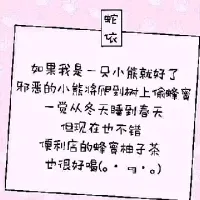 蛇依
如果我是一只小熊就好了
邪恶的小熊将爬到树上偷蜂蜜
一觉从冬天睡到春天
但现在也不错
便利店的蜂蜜柚子茶
也很好喝(｡･ ㅋ ･｡)